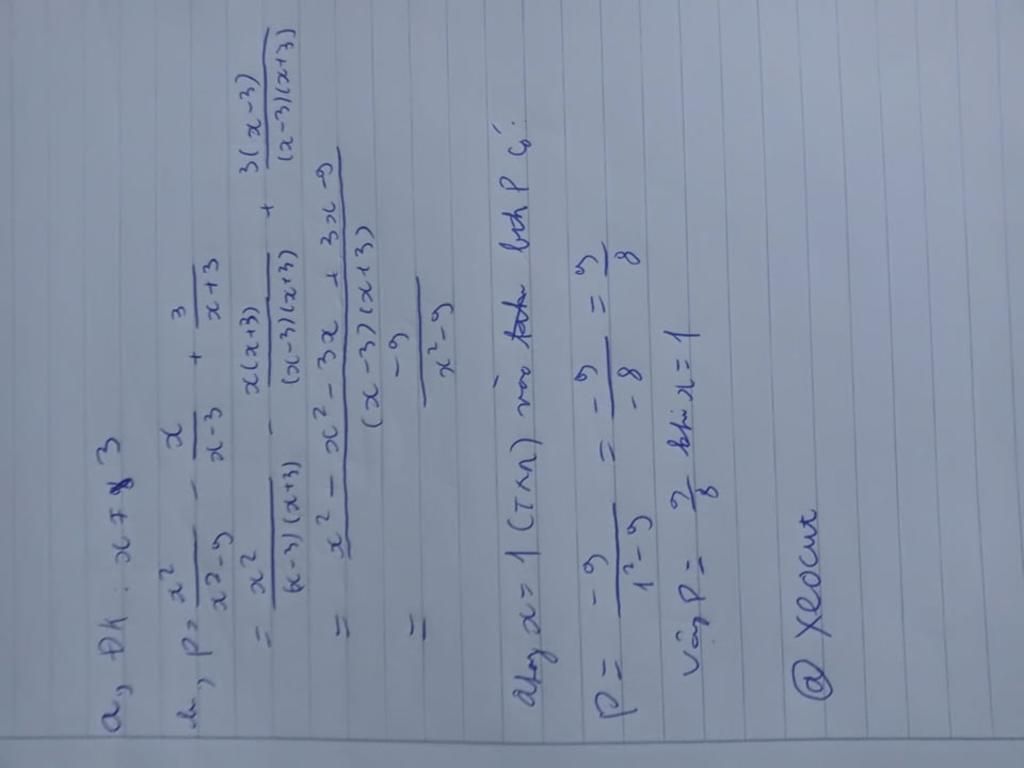 a, ĐK: x ≠ 3
b, P = x²/(x²-9) - x/(x-3) + 3/(x+3)
= x²/((x-3)(x+3)) - x(x+3)/((x-3)(x+3)) + 3(x-3)/((x-3)(x+3))
= (x² - x² - 3x + 3x - 9)/((x-3)(x+3))
= -9/(x²-9)
Thay x = 1 (TM) vào P có:
P = -9/(1²-9) = -9/-8 = 9/8
Vậy P = 9/8 khi x = 1
@ Xeocut